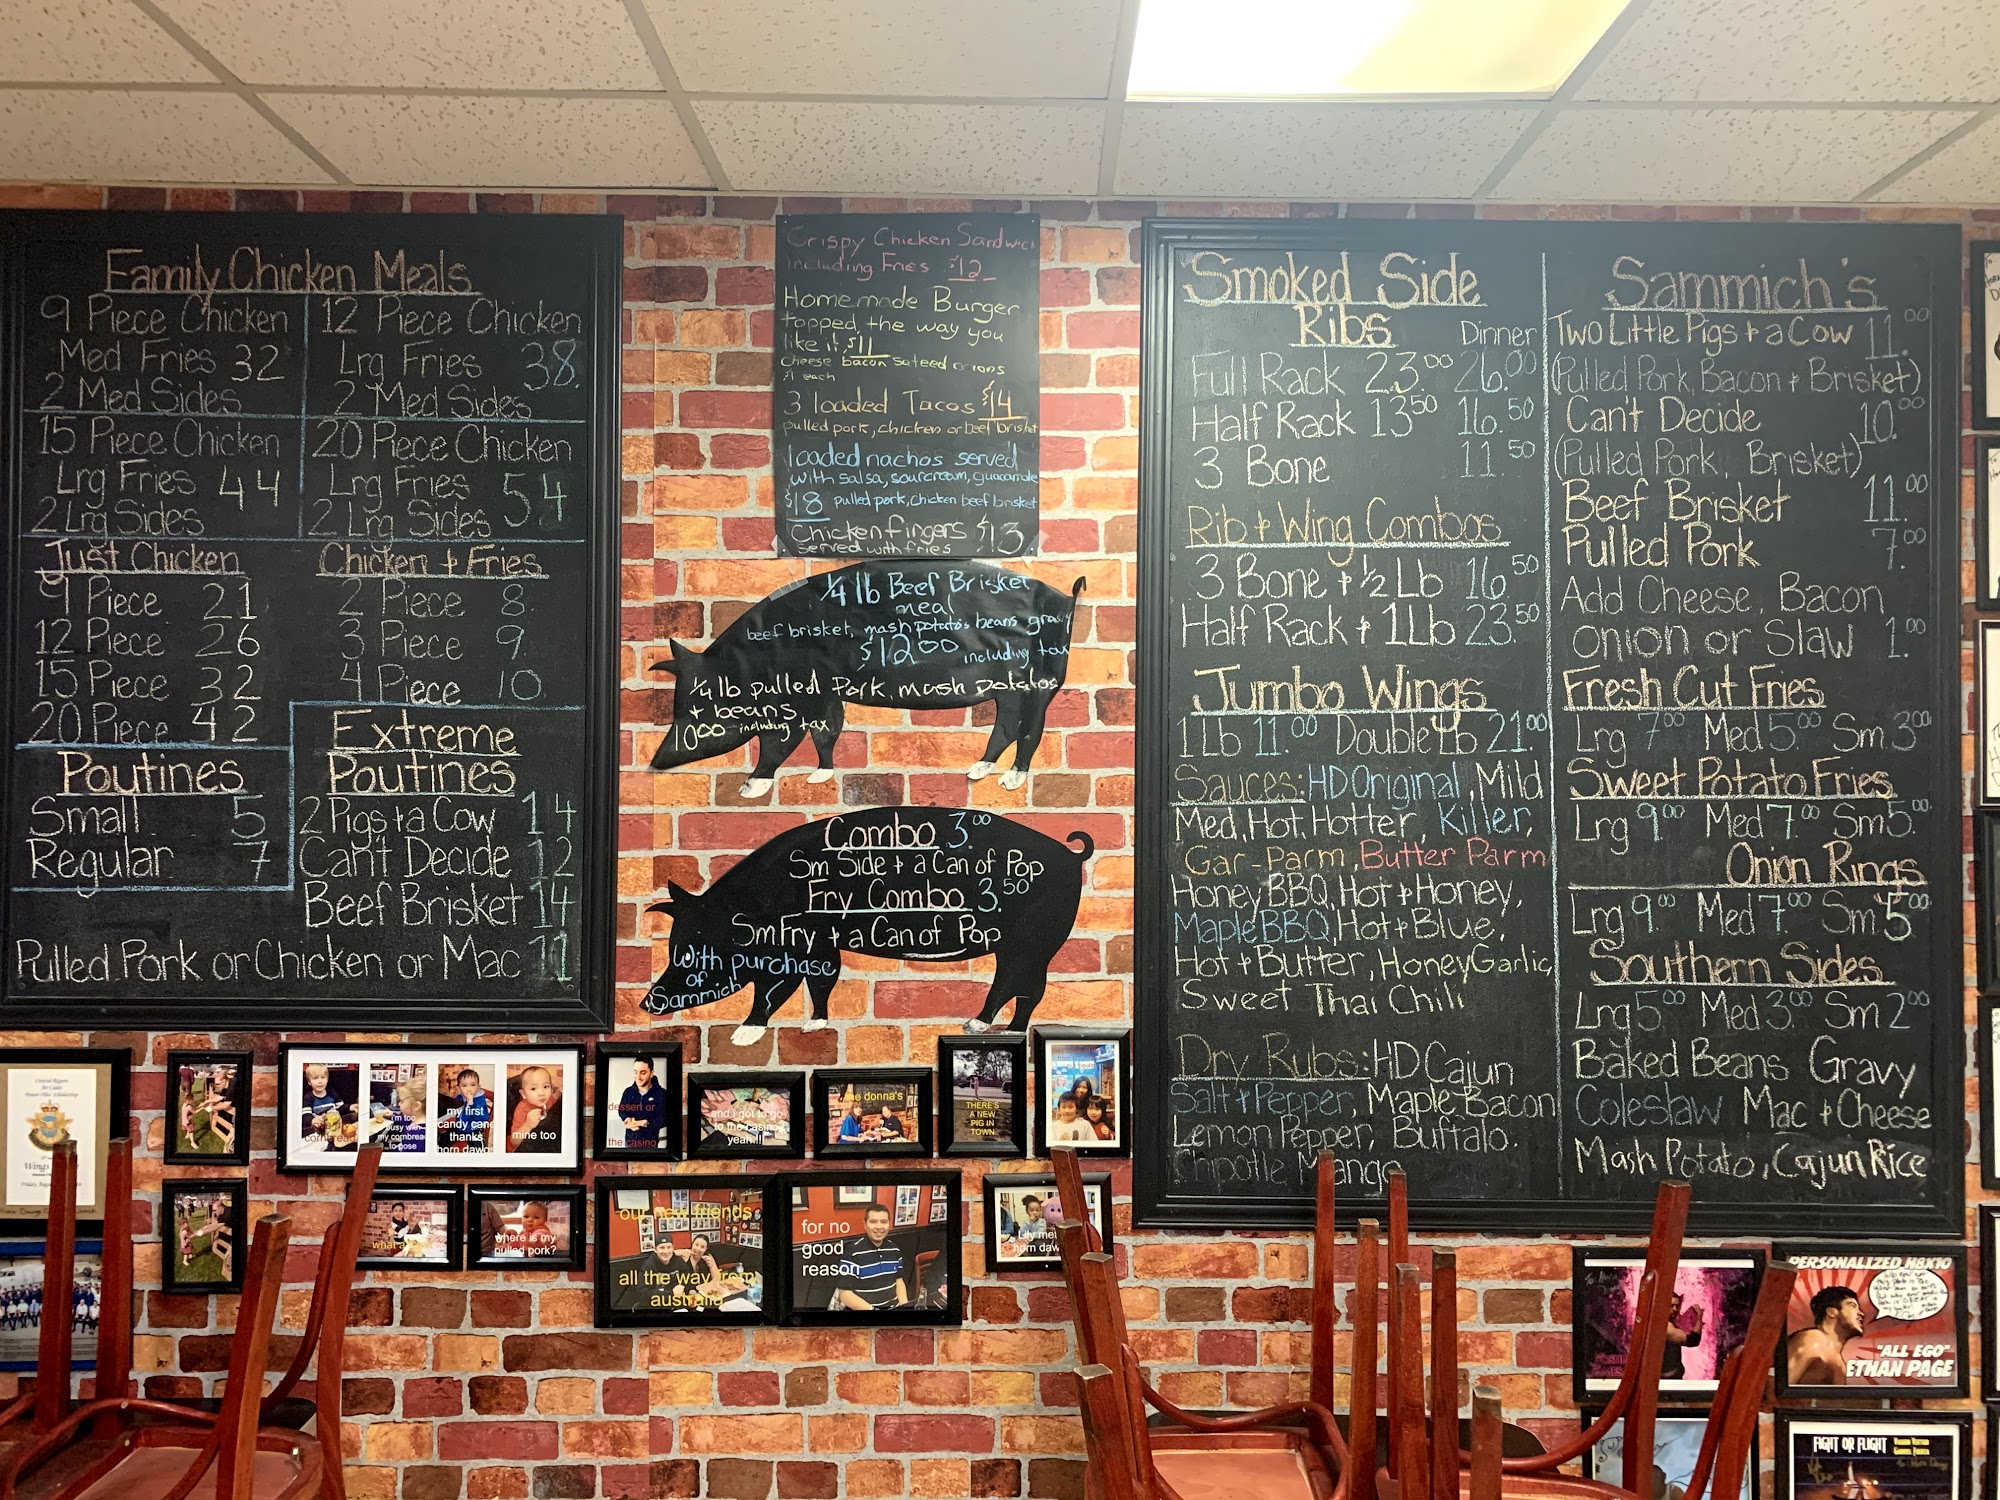 Family Chicken Meals
9 Piece Chicken
Med Fries 32
2 Med Sides
12 Piece Chicken
Lrg Fries 38.
2 Med Sides
15 Piece Chicken
Lrg Fries 44
2 Lrg Sides
20 Piece Chicken
Lrg Fries 54
2 Lrg Sides
Just Chicken
9 Piece 21
12 Piece 26
15 Piece 32
20 Piece 42
Chicken + Fries
2 Piece 8.
3 Piece 9.
4 Piece 10.
Poutines
Small 5
Regular 7
Extreme
Poutines
2 Pigs + a Cow 14
Can't Decide 12
Beef Brisket 14
Pulled Pork or Chicken or Mac 11
Crispy Chicken Sandwich
including Fries $12
Homemade Burger
topped, the way you
like it $11
cheese bacon sateed onions
$1 each
3 loaded Tacos $14
pulled pork, chicken or beef brisket
loaded nachos served
with salsa, sourcream, guacamole
$18 pulled pork, chicken beef brisket
Chicken fingers $13
served with fries
1/4 lb Beef Brisket
meal
beef brisket, mash potato's beans gravy
$12.00 including tax
1/4 lb pulled Pork, mash potatos
+ beans
10.00 including tax
Combo 3.00
Sm Side + a Can of Pop
Fry Combo 3.50
Sm Fry + a Can of Pop
With purchase
of
Sammich
Smoked Side
Ribs Dinner
Full Rack 23.00 26.00
Half Rack 13.50 16.50
3 Bone 11.50
Rib + Wing Combos
3 Bone + 1/2 Lb 16.50
Half Rack + 1Lb 23.50
Jumbo Wings
1 Lb 11.00 Double Lb 21.00
Sauces: HD Original, Mild
Med, Hot, Hotter, Killer,
Gar-Parm, Butter Parm
Honey BBQ, Hot + Honey,
Maple BBQ, Hot + Blue,
Hot + Butter, Honey Garlic,
Sweet Thai Chili
Dry Rubs: HD Cajun
Salt + Pepper, Maple Bacon
Lemon Pepper, Buffalo.
Chipotle Mango
Sammich's
Two Little Pigs + a Cow 11.00
(Pulled Pork, Bacon + Brisket)
Can't Decide 10.00
(Pulled Pork, Brisket)
Beef Brisket 11.00
Pulled Pork 7.00
Add Cheese, Bacon
Onion or Slaw 1.00
Fresh Cut Fries
Lrg 7.00 Med 5.00 Sm. 3.00
Sweet Potato Fries
Lrg 9.00 Med 7.00 Sm 5.00
Onion Rings
Lrg 9.00 Med 7.00 Sm 5.00
Southern Sides
Lrg 5.00 Med 3.00 Sm 2.00
Baked Beans Gravy
Coleslaw Mac + Cheese
Mash Potato, Cajun Rice
i'm too
busy with
my cornbread
to pose
my first
candy cane
thanks
horn dawg
mine too
dessert or
the casino
and i got to go
to the casino
yeah !!
the donna's
THERE'S
A NEW
PIG IN
TOWN
where is my
pulled pork?
our new friends
all the way from
australia
for no
good
reason
PERSONALIZED #8X10
"ALL EGO"
ETHAN PAGE
FIGHT OR FLIGHT